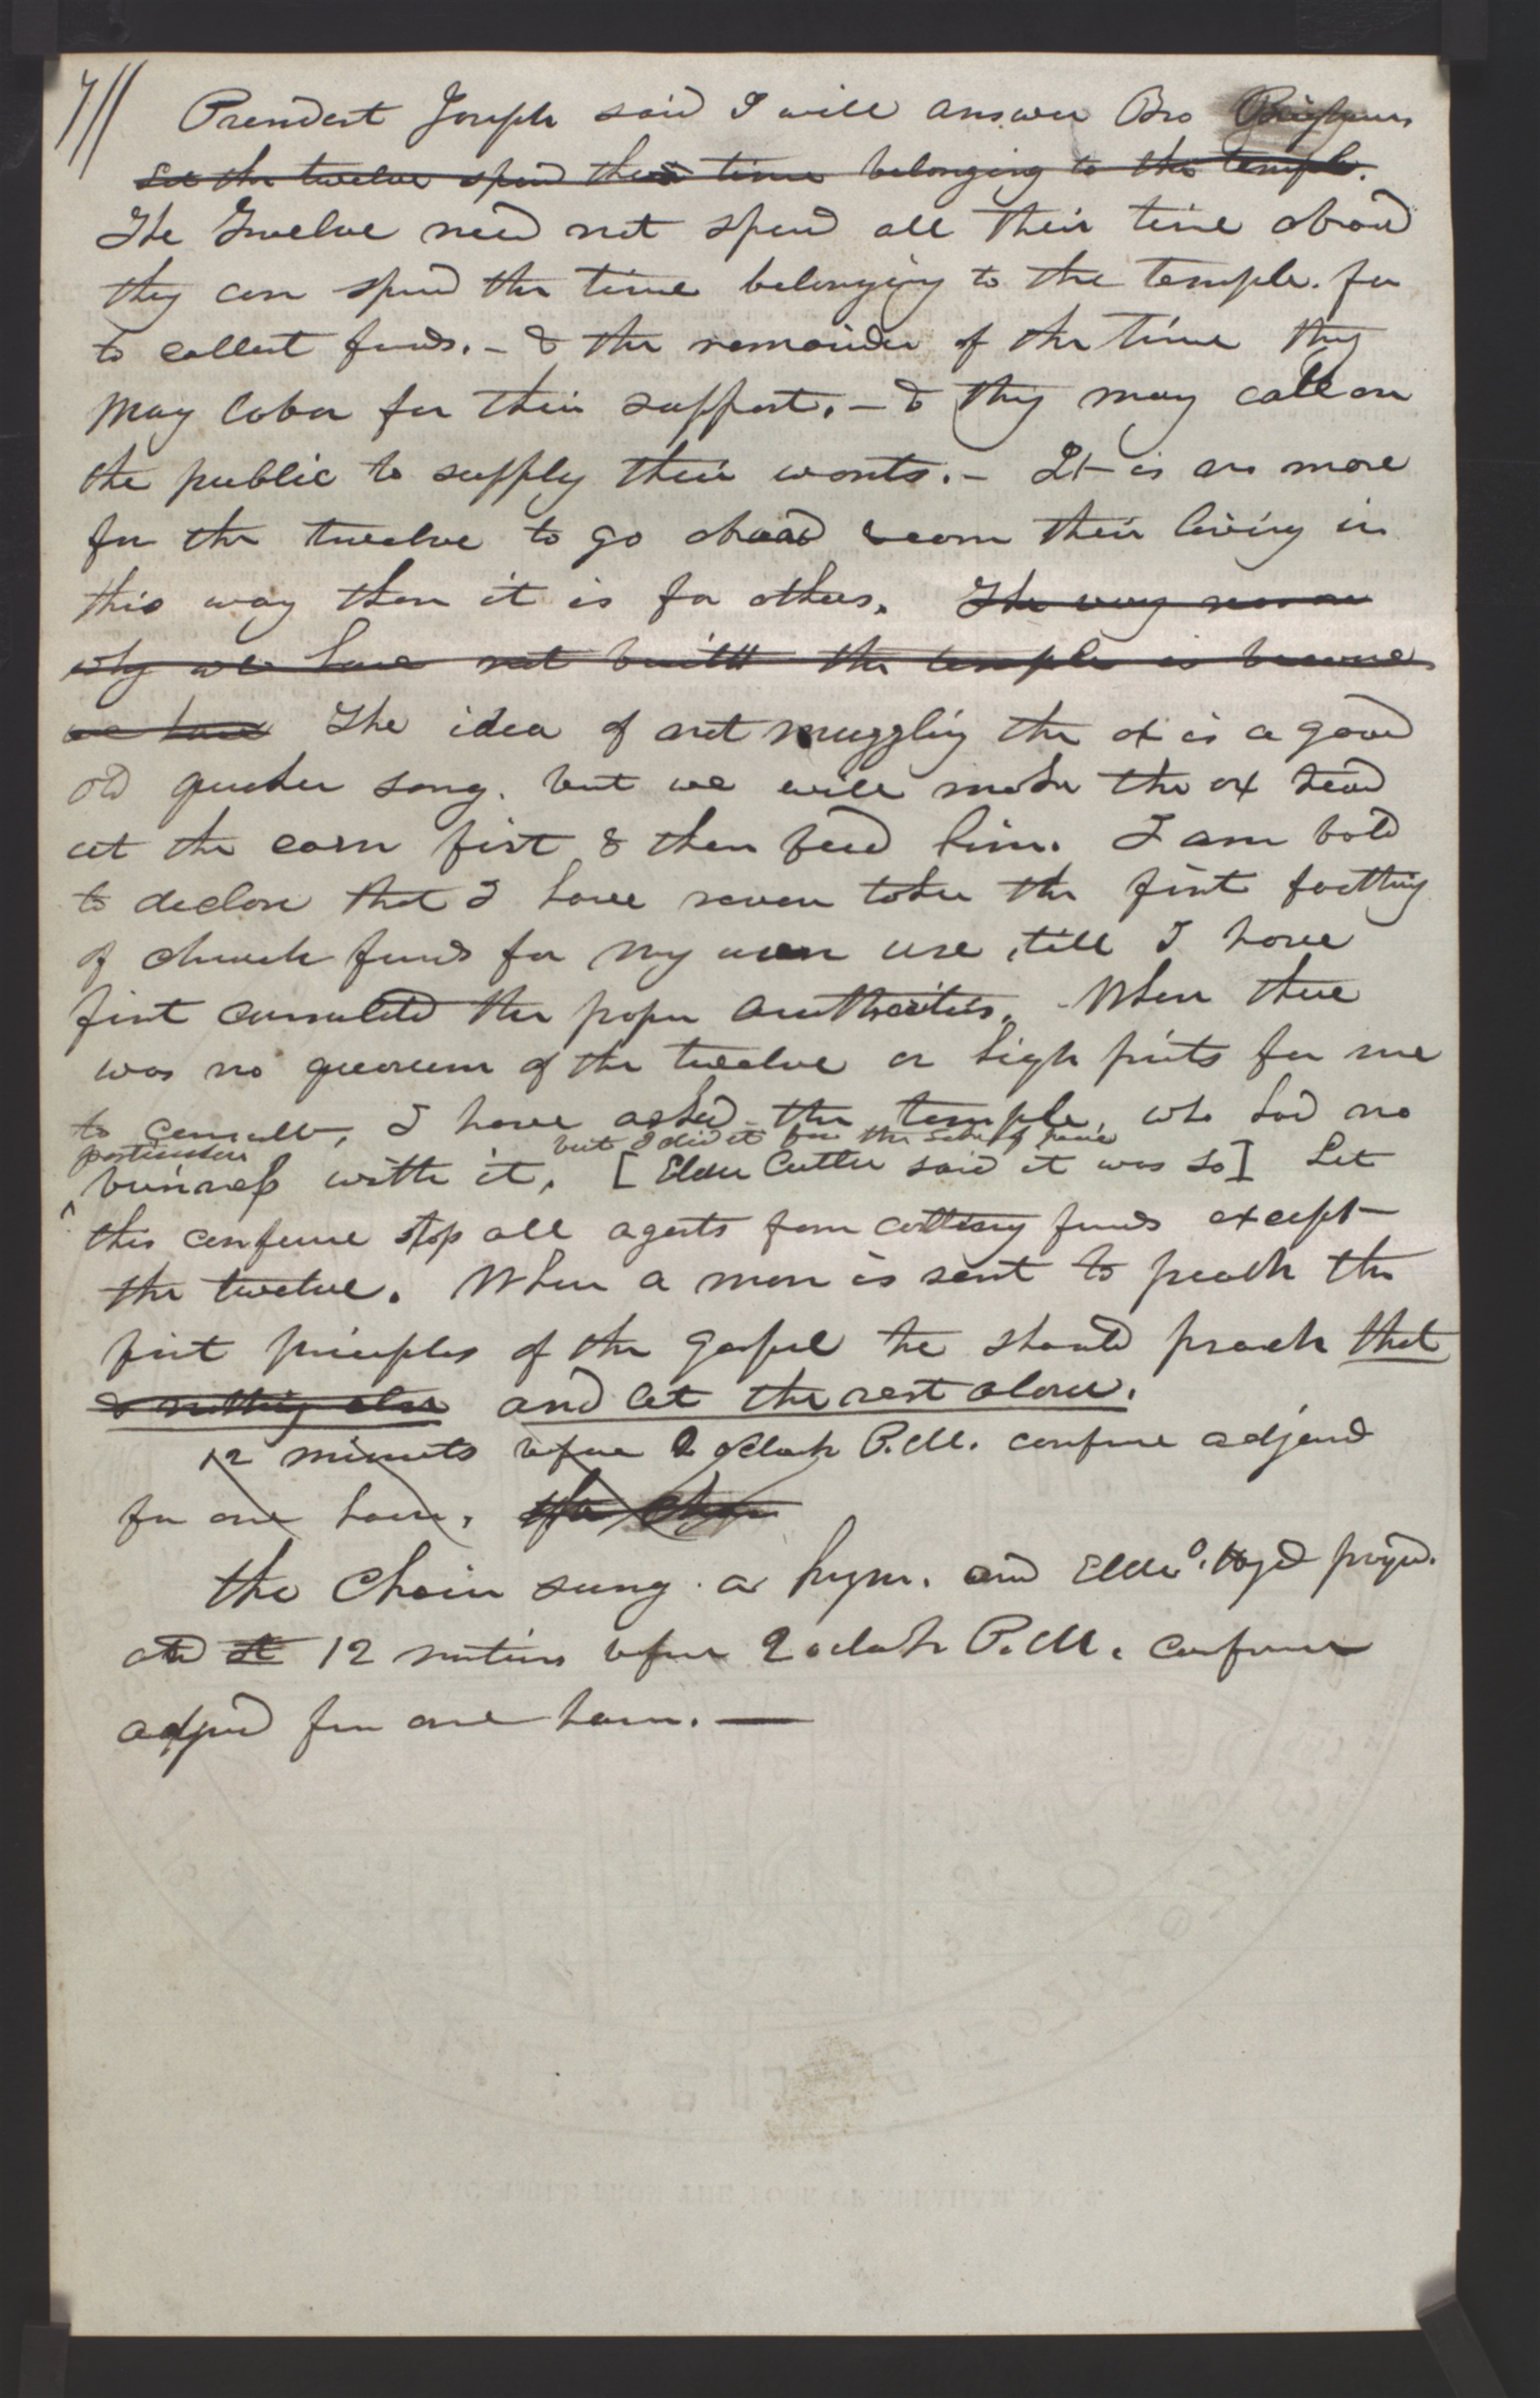 7//
President Joseph said I will answer Bro Brigham
Let the twelve spend their time belonging to the temple.
The Twelve need not spend all their time abroad
they can spend the time belonging to the temple. for
to collect funds. - & the remainder of the time they
may labor for their support. - & they may call on
the public to supply their wants. - It is no more
for the twelve to go abroad & earn their living in
this way than it is for others. The very reason
why we have not built the temple is because
we have The idea of not muzzling the ox is a good
old quaker song. but we will make the ox tread
out the corn first & then feed him. I am bold
to declare that I have never taken the first farthing
of church funds for my own use, till I have
first consulted the proper authorities. When there
was no quorum of the twelve or high priests for me
to consult, I have asked the temple, who had no
particular but I did it for the sake of peace
business with it. [Elder Cutler said it was so] Let
this conference stop all agents from collecting funds except
the twelve. When a man is sent to preach the
first principles of the gospel he should preach that
& nothing else and let the rest alone.
12 minutes before 2 oclock P.M. conference adjourned
for one hour.
the Choir sung a hymn. and Elder O. Hyde prayed.
and at 12 minutes before 2 oclock P.M. conference
adjourned for one hour. —